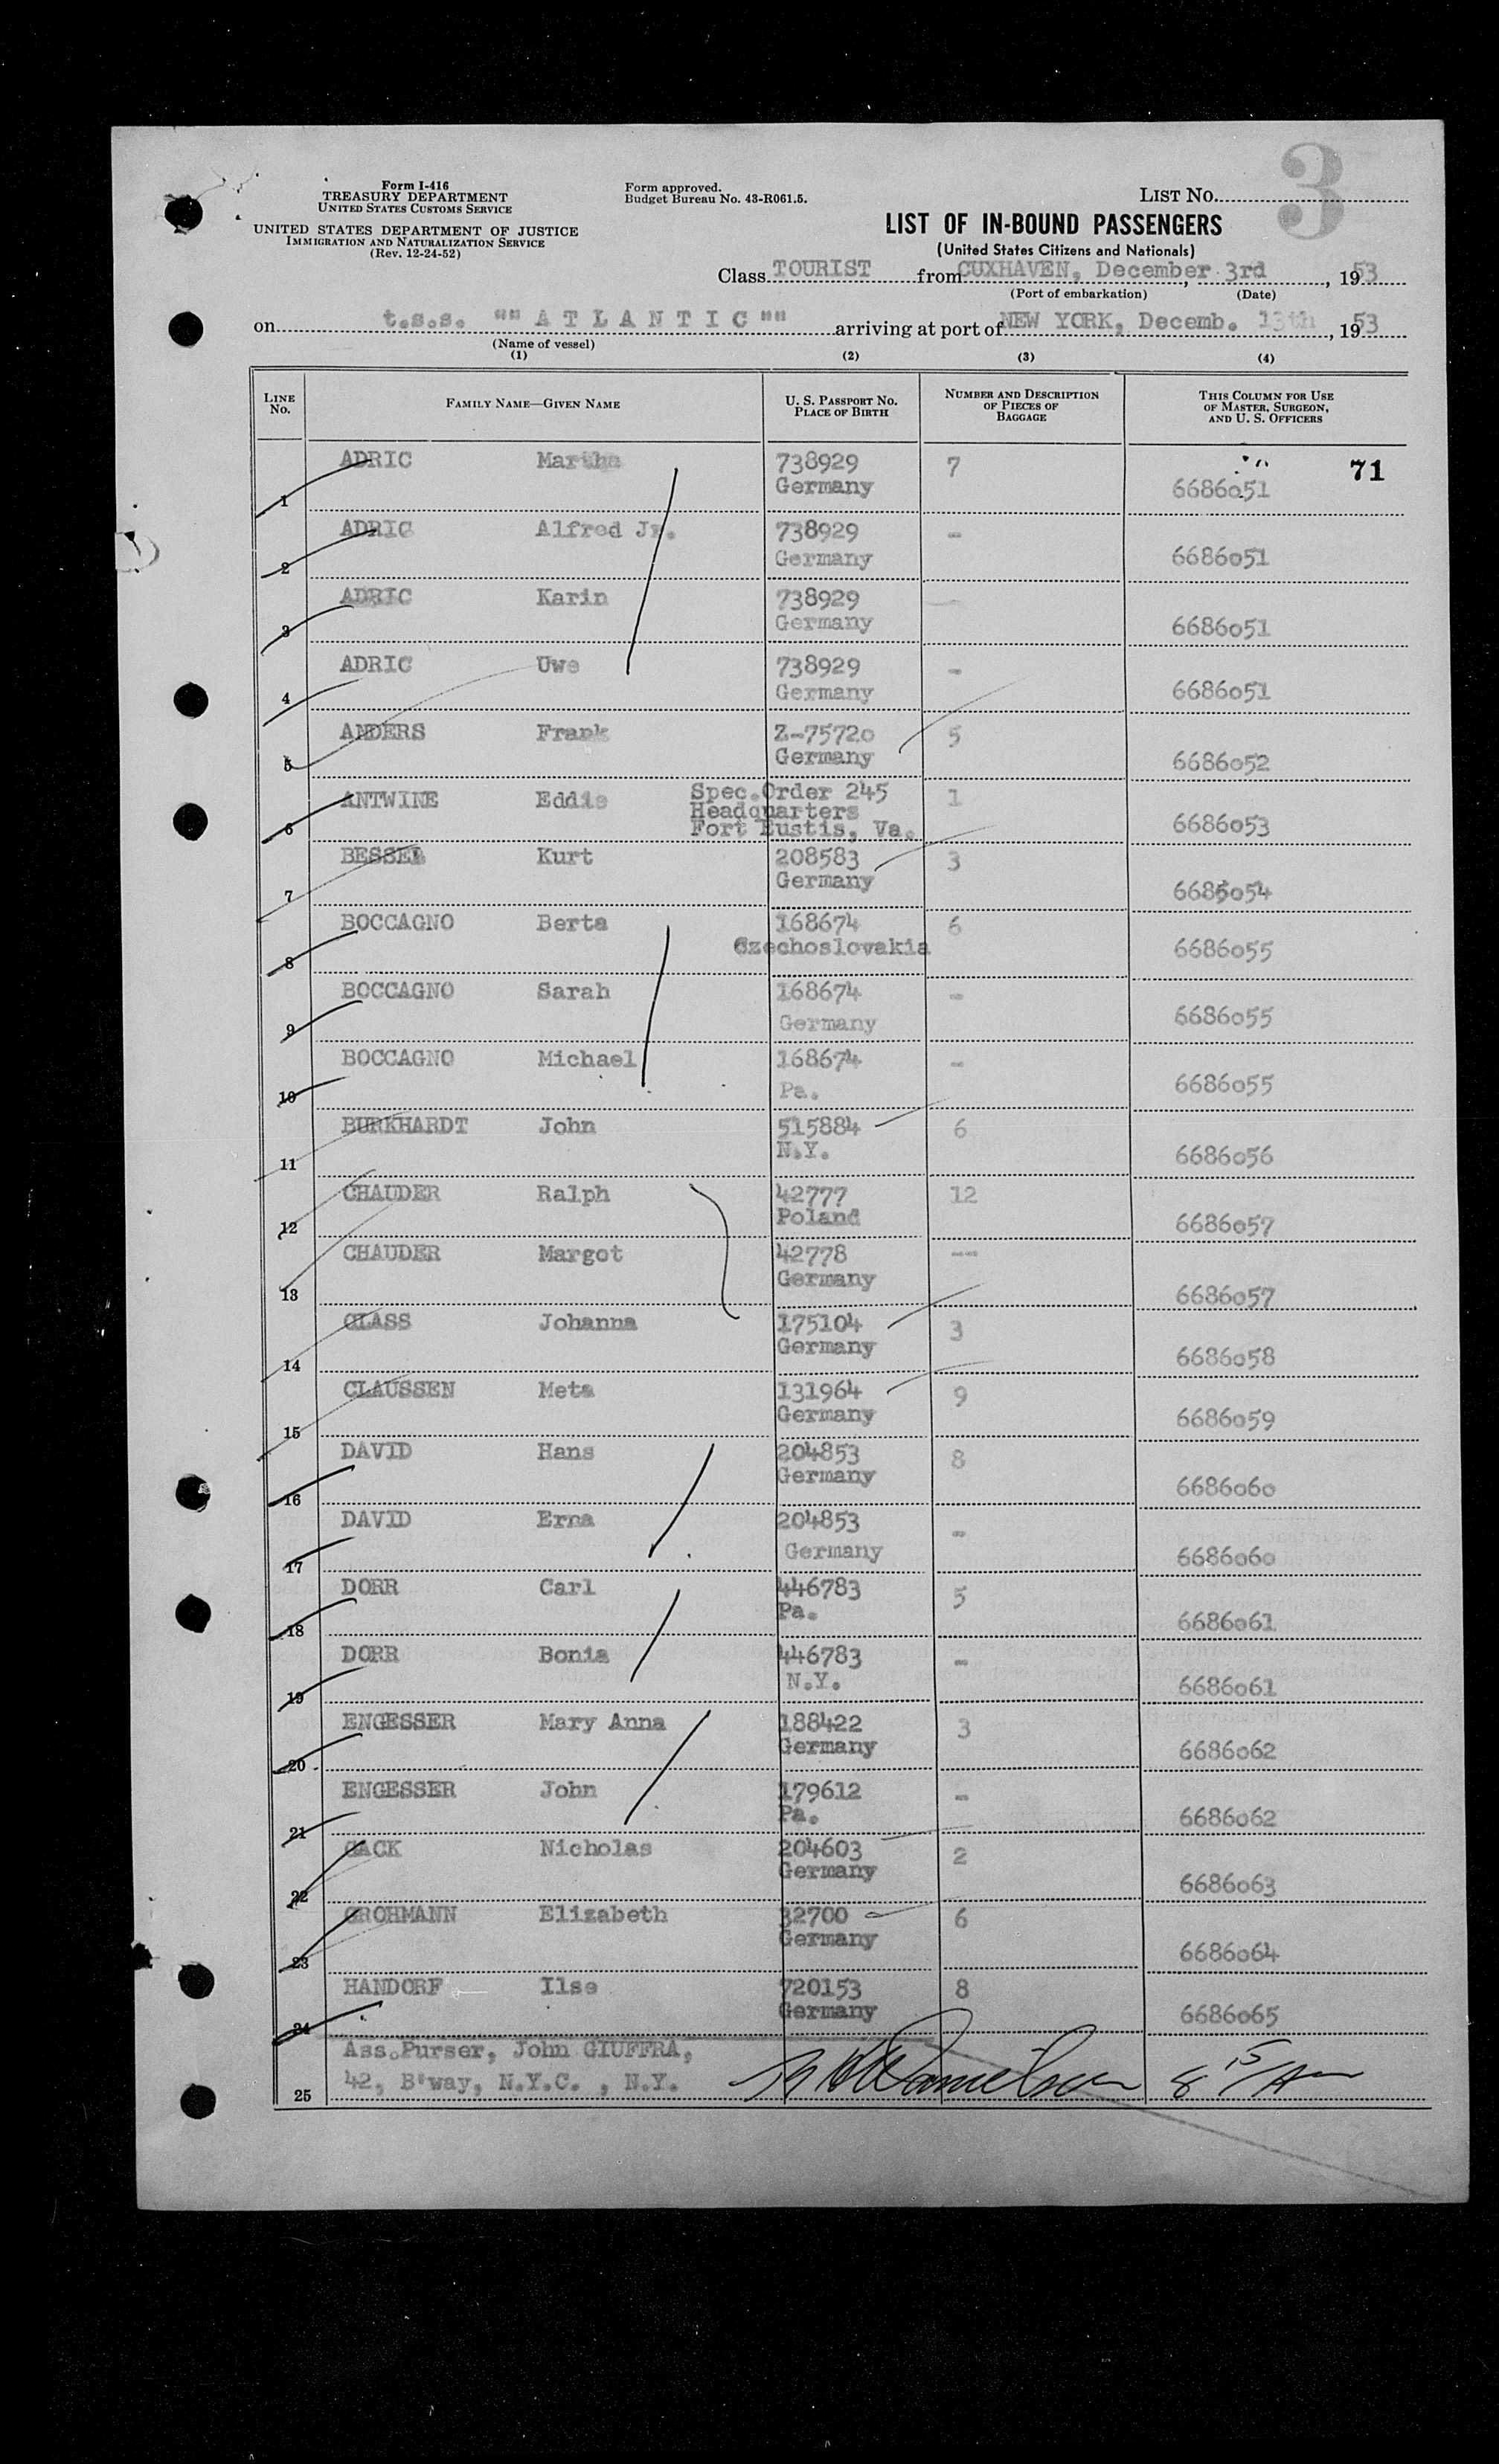 3
Form I-416
TREASURY DEPARTMENT
UNITED STATES CUSTOMS SERVICE
UNITED STATES DEPARTMENT OF JUSTICE
IMMIGRATION AND NATURALIZATION SERVICE
(Rev. 12-24-52)
Form approved.
Budget Bureau No. 43-R061.5.
LIST NO.
LIST OF IN-BOUND PASSENGERS
(United States Citizens and Nationals)
Class TOURIST from CUXHAVEN, December 3rd, 1953
(Port of embarkation) (Date)
on t.s.s. "" A T L A N T I C "" arriving at port of NEW YORK, Decemb. 13th, 1953
(Name of vessel)
(1) (2) (3) (4)
LINE No. FAMILY NAME—GIVEN NAME U. S. PASSPORT NO. PLACE OF BIRTH NUMBER AND DESCRIPTION OF PIECES OF BAGGAGE THIS COLUMN FOR USE OF MASTER, SURGEON, AND U. S. OFFICERS
71
1 ADRIC Martha 738929 Germany 7 6686051
2 ADRIC Alfred Jr. 738929 Germany - 6686051
3 ADRIC Karin 738929 Germany 6686051
4 ADRIC Uwe 738929 Germany - 6686051
5 ANDERS Frank Z-75720 Germany 5 6686052
6 ANTWINE Eddie Spec.Order 245 Headquarters Fort Eustis, Va. 1 6686053
7 BESSEL Kurt 208583 Germany 3 6686054
8 BOCCAGNO Berta 168674 Czechoslovakia 6 6686055
9 BOCCAGNO Sarah 168674 Germany - 6686055
10 BOCCAGNO Michael 168674 Pa. - 6686055
11 BURKHARDT John 515884 N.Y. 6 6686056
12 CHAUDER Ralph 42777 Poland 12 6686057
13 CHAUDER Margot 42778 Germany -- 6686057
14 CLASS Johanna 175104 Germany 3 6686058
15 CLAUSSEN Meta 131964 Germany 9 6686059
16 DAVID Hans 204853 Germany 8 6686060
17 DAVID Erna 204853 Germany - 6686060
18 DORR Carl 446783 Pa. 5 6686061
19 DORR Bonia 446783 N.Y. - 6686061
20 ENGESSER Mary Anna 188422 Germany 3 6686062
21 ENGESSER John 179612 Pa. - 6686062
22 GACK Nicholas 204603 Germany 2 6686063
23 GROHMANN Elizabeth 32700 Germany 6 6686064
24 HANDORF Ilse 720153 Germany 8 6686065
Ass.Purser, John GIUFFRA,
25 42, B'way, N.Y.C. , N.Y.